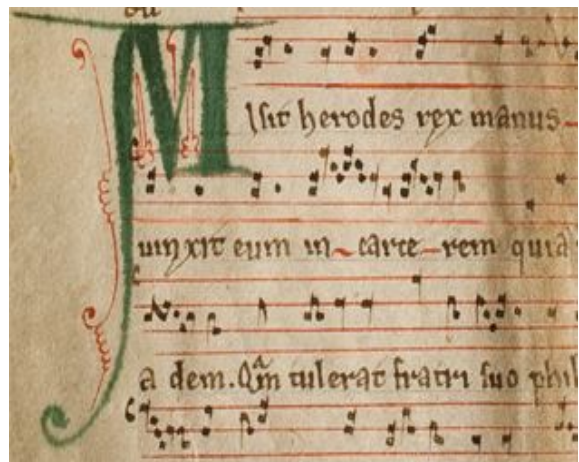 MIsit herodes rex manus
uinxit eum in carcerem quia
a dem. Qm̃ tulerat fratri suo phil